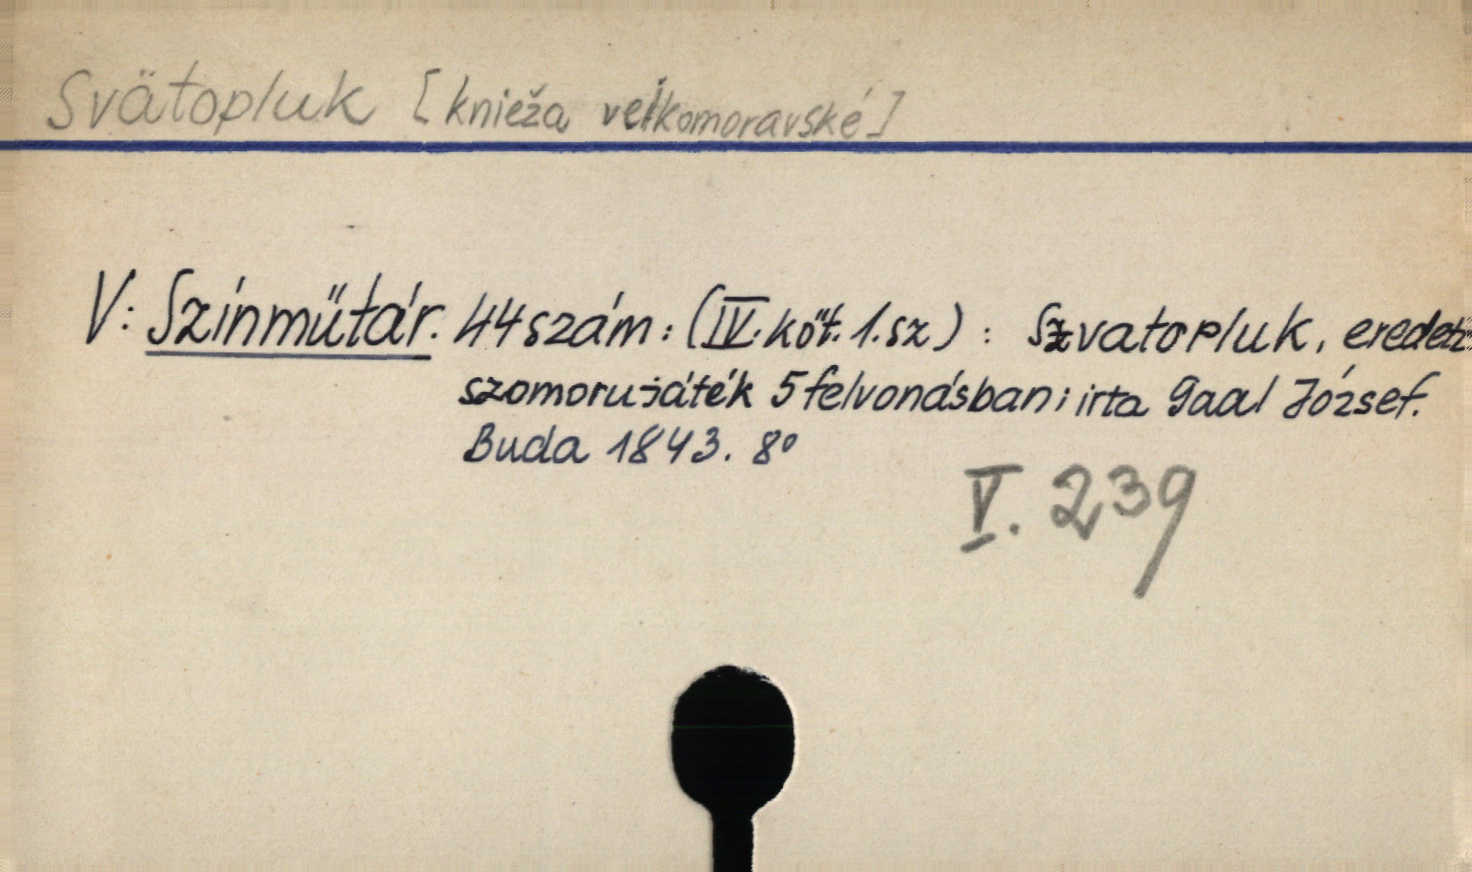 Svätopluk [knieža veľkomoravské]
V: Színműtár. 44 szám: (IV. köt. 1. sz): Szvatopluk, eredeti
szomorujáték 5 felvonásban; irta Gaal József.
Buda 1843. 8°
V. 239